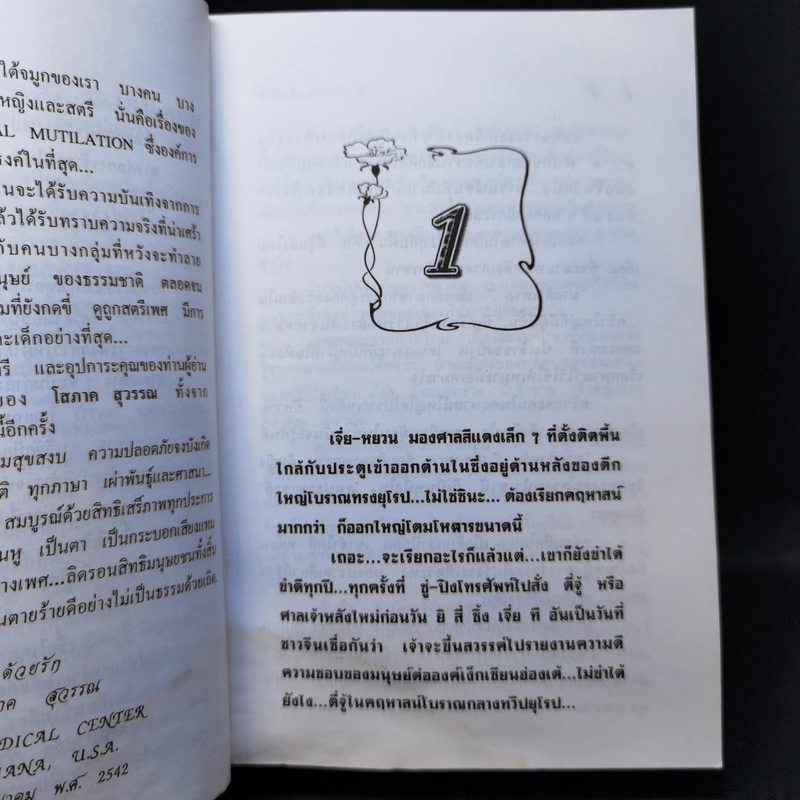 ใต้จมูกของเรา บางคน บาง
หญิงและสตรี นั่นคือเรื่องของ
AL MUTILATION ซึ่งองค์การ
รงค์ในที่สุด...
นจะได้รับความบันเทิงจากการ
ล้วได้รับทราบความจริงที่น่าเศร้า
กับคนบางกลุ่มที่หวังจะทำลาย
นุษย์ ของธรรมชาติ ตลอดจน
มที่ยังกดขี่ ดูถูกสตรีเพศ มีการ
ละเด็กอย่างที่สุด...
รี และอุปการะคุณของท่านผู้อ่าน
ของ โสภาค สุวรรณ ทั้งจาก
นี้อีกครั้ง
มสุขสงบ ความปลอดภัยจงบังเกิด
ติ ทุกภาษา เผ่าพันธุ์และศาสนา...
สมบูรณ์ด้วยสิทธิเสรีภาพทุกประการ
นหู เป็นตา เป็นกระบอกเสียงแทน
างเพศ...ลิดรอนสิทธิมนุษยชนทั้งสิ้น
นตายร้ายดีอย่างไม่เป็นธรรมด้วยเถิด
ด้วยรัก
าค สุวรรณ
DICAL CENTER
IANA, U.S.A.
าคม พ.ศ. 2542
1
เจี่ย-หยวน มองศาลสีแดงเล็ก ๆ ที่ตั้งติดพื้น
ใกล้กับประตูเข้าออกด้านในซึ่งอยู่ด้านหลังของตึก
ใหญ่โบราณทรงยุโรป...ไม่ใช่ซินะ... ต้องเรียกคฤหาสน์
มากกว่า ก็ออกใหญ่โตมโหฬารขนาดนี้
เถอะ...จะเรียกอะไรก็แล้วแต่...เขาก็ยังขำได้
ขำดีทุกปี...ทุกครั้งที่ ซู่-ปิงโทรศัพท์ไปสั่ง ตี่จู้ หรือ
ศาลเจ้าหลังใหม่ก่อนวัน ยิ สี่ ซิ้ง เจี่ย ที อันเป็นวันที่
ชาวจีนเชื่อกันว่า เจ้าจะขึ้นสวรรค์ไปรายงานความดี
ความชอบของมนุษย์ต่อองค์เง็กเซียนฮ่องเต้...ไม่ขำได้
ยังไง...ตี่จู้ในคฤหาสน์โบราณกลางทวีปยุโรป...